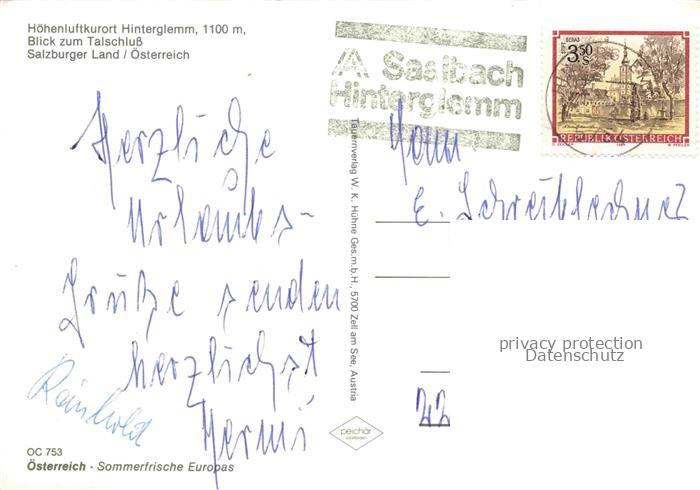 Höhenluftkurort Hinterglemm, 1100 m,
Blick zum Talschluß
Salzburger Land / Österreich
Saalbach
Hinterglemm
STIFT GERAS
3.50
S
REPUBLIK ÖSTERREICH
Herzliche
Urlaubs-
Grüße senden
herzlichst
Hermi
Reinhold
Tauernverlag W. K. Hühne Ges.m.b.H., 5700 Zell am See, Austria
Herrn
E.
privacy protection
Datenschutz
22
peichär
OC 753
Österreich - Sommerfrische Europas